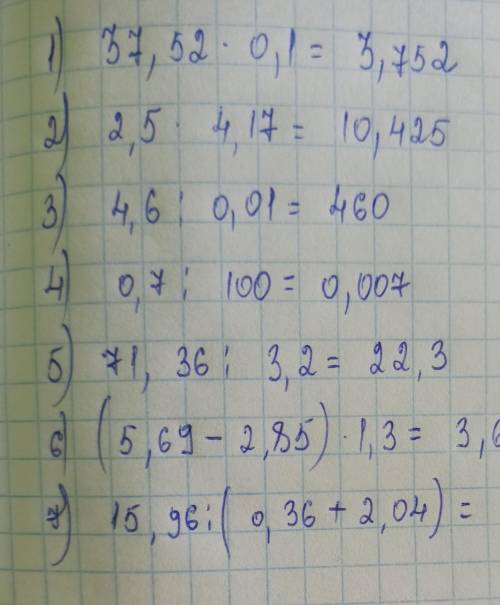 1) 37,52 · 0,1 = 3,752
2) 2,5 · 4,17 = 10,425
3) 4,6 : 0,01 = 460
4) 0,7 : 100 = 0,007
5) 71,36 : 3,2 = 22,3
6) (5,69 - 2,85) · 1,3 = 3,6
7) 15,96 : (0,36 + 2,04) =